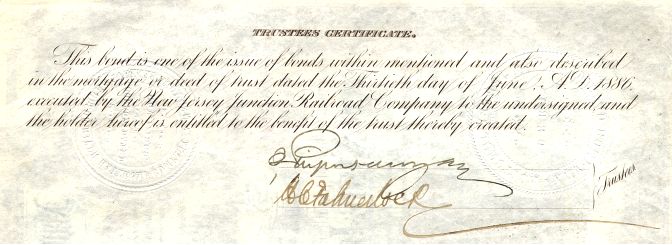 TRUSTEES CERTIFICATE.
This bond is one of the issue of bonds within mentioned and also described
in the mortgage or deed of trust dated the Thirtieth day of June, A.D. 1886,
executed by the New Jersey Junction Railroad Company to the undersigned and
the holder hereof is entitled to the benefit of the trust thereby created.
Trustees